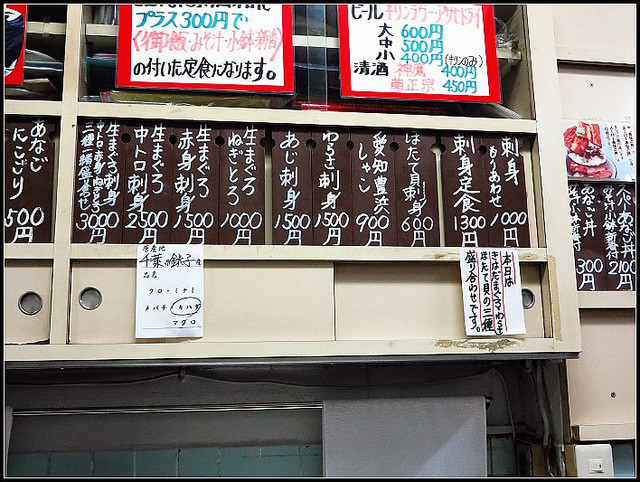 プラス300円で
(御飯・みそ汁・小鉢・新香)
の付いた定食になります。
ビール キリンラガー・アサヒドライ
大 600円
中 500円
小 400円(キリンのみ)
清酒 神鷹 400円
菊正宗 450円
刺身もりあわせ 1000円
刺身定食 1300円
ほたて刺身 600円
愛知豊浜 しゃこ 900円
わらさ刺身 1500円
あじ刺身 1500円
生まぐろ ねぎとろ 1000円
生まぐろ 赤身刺身 1500円
生まぐろ 中トロ刺身 2500円
生まぐろ刺身 中トロ・赤身・ねぎとろ 三種盛り合わせ 3000円
あなご にこごり 500円
原産地
千葉の銚子産
品名
クロ・ミナミ
メバチ キハダ
マグロ
本日は
きはだまぐろ・わらさ
ほたて貝の三種
盛り合わせです。